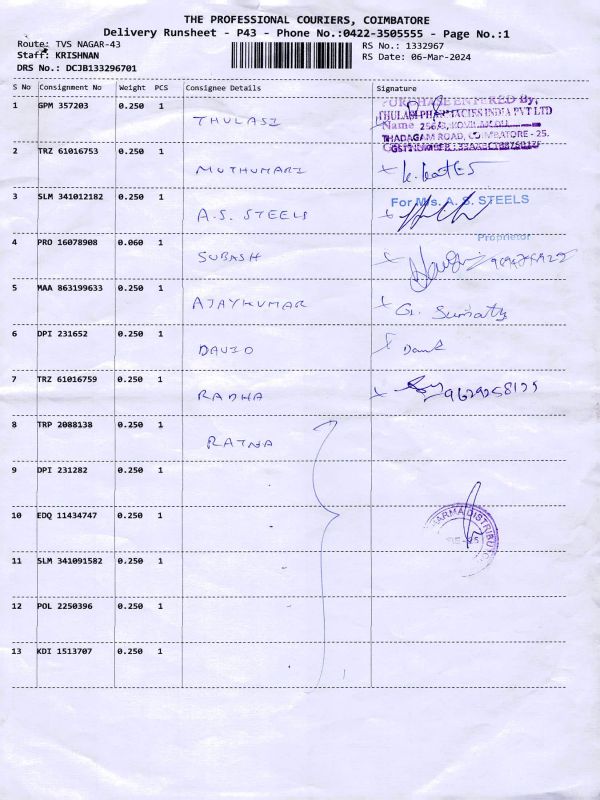 THE PROFESSIONAL COURIERS, COIMBATORE
Delivery Runsheet - P43 - Phone No.:0422-3505555 - Page No.:1
Route: TVS NAGAR-43 RS No.: 1332967
Staff: KRISHNAN RS Date: 06-Mar-2024
DRS No.: DCJB133296701
S No Consignment No Weight PCS Consignee Details Signature
1 GPM 357203 0.250 1 THULASI
PURCHASE ENTERED By,
THULASI PHARMACIES INDIA PVT LTD
Name 256/3,
THADAGAM ROAD, COIMBATORE - 25.
2 TRZ 61016753 0.250 1 MUTHUMARI
3 SLM 341012182 0.250 1 A.S. STEELS For M/s. A. S. STEELS
Proprietor
4 PRO 16078908 0.060 1 SUBASH
5 MAA 863199633 0.250 1 AJAYKUMAR G. Sumathy
6 DPI 231652 0.250 1 DAVID
7 TRZ 61016759 0.250 1 RADHA 9629258129
8 TRP 2088138 0.250 1 RATNA
9 DPI 231282 0.250 1
10 EDQ 11434747 0.250 1 PHARMA DISTRIBUTOR
11 SLM 341091582 0.250 1
12 POL 2250396 0.250 1
13 KDI 1513707 0.250 1